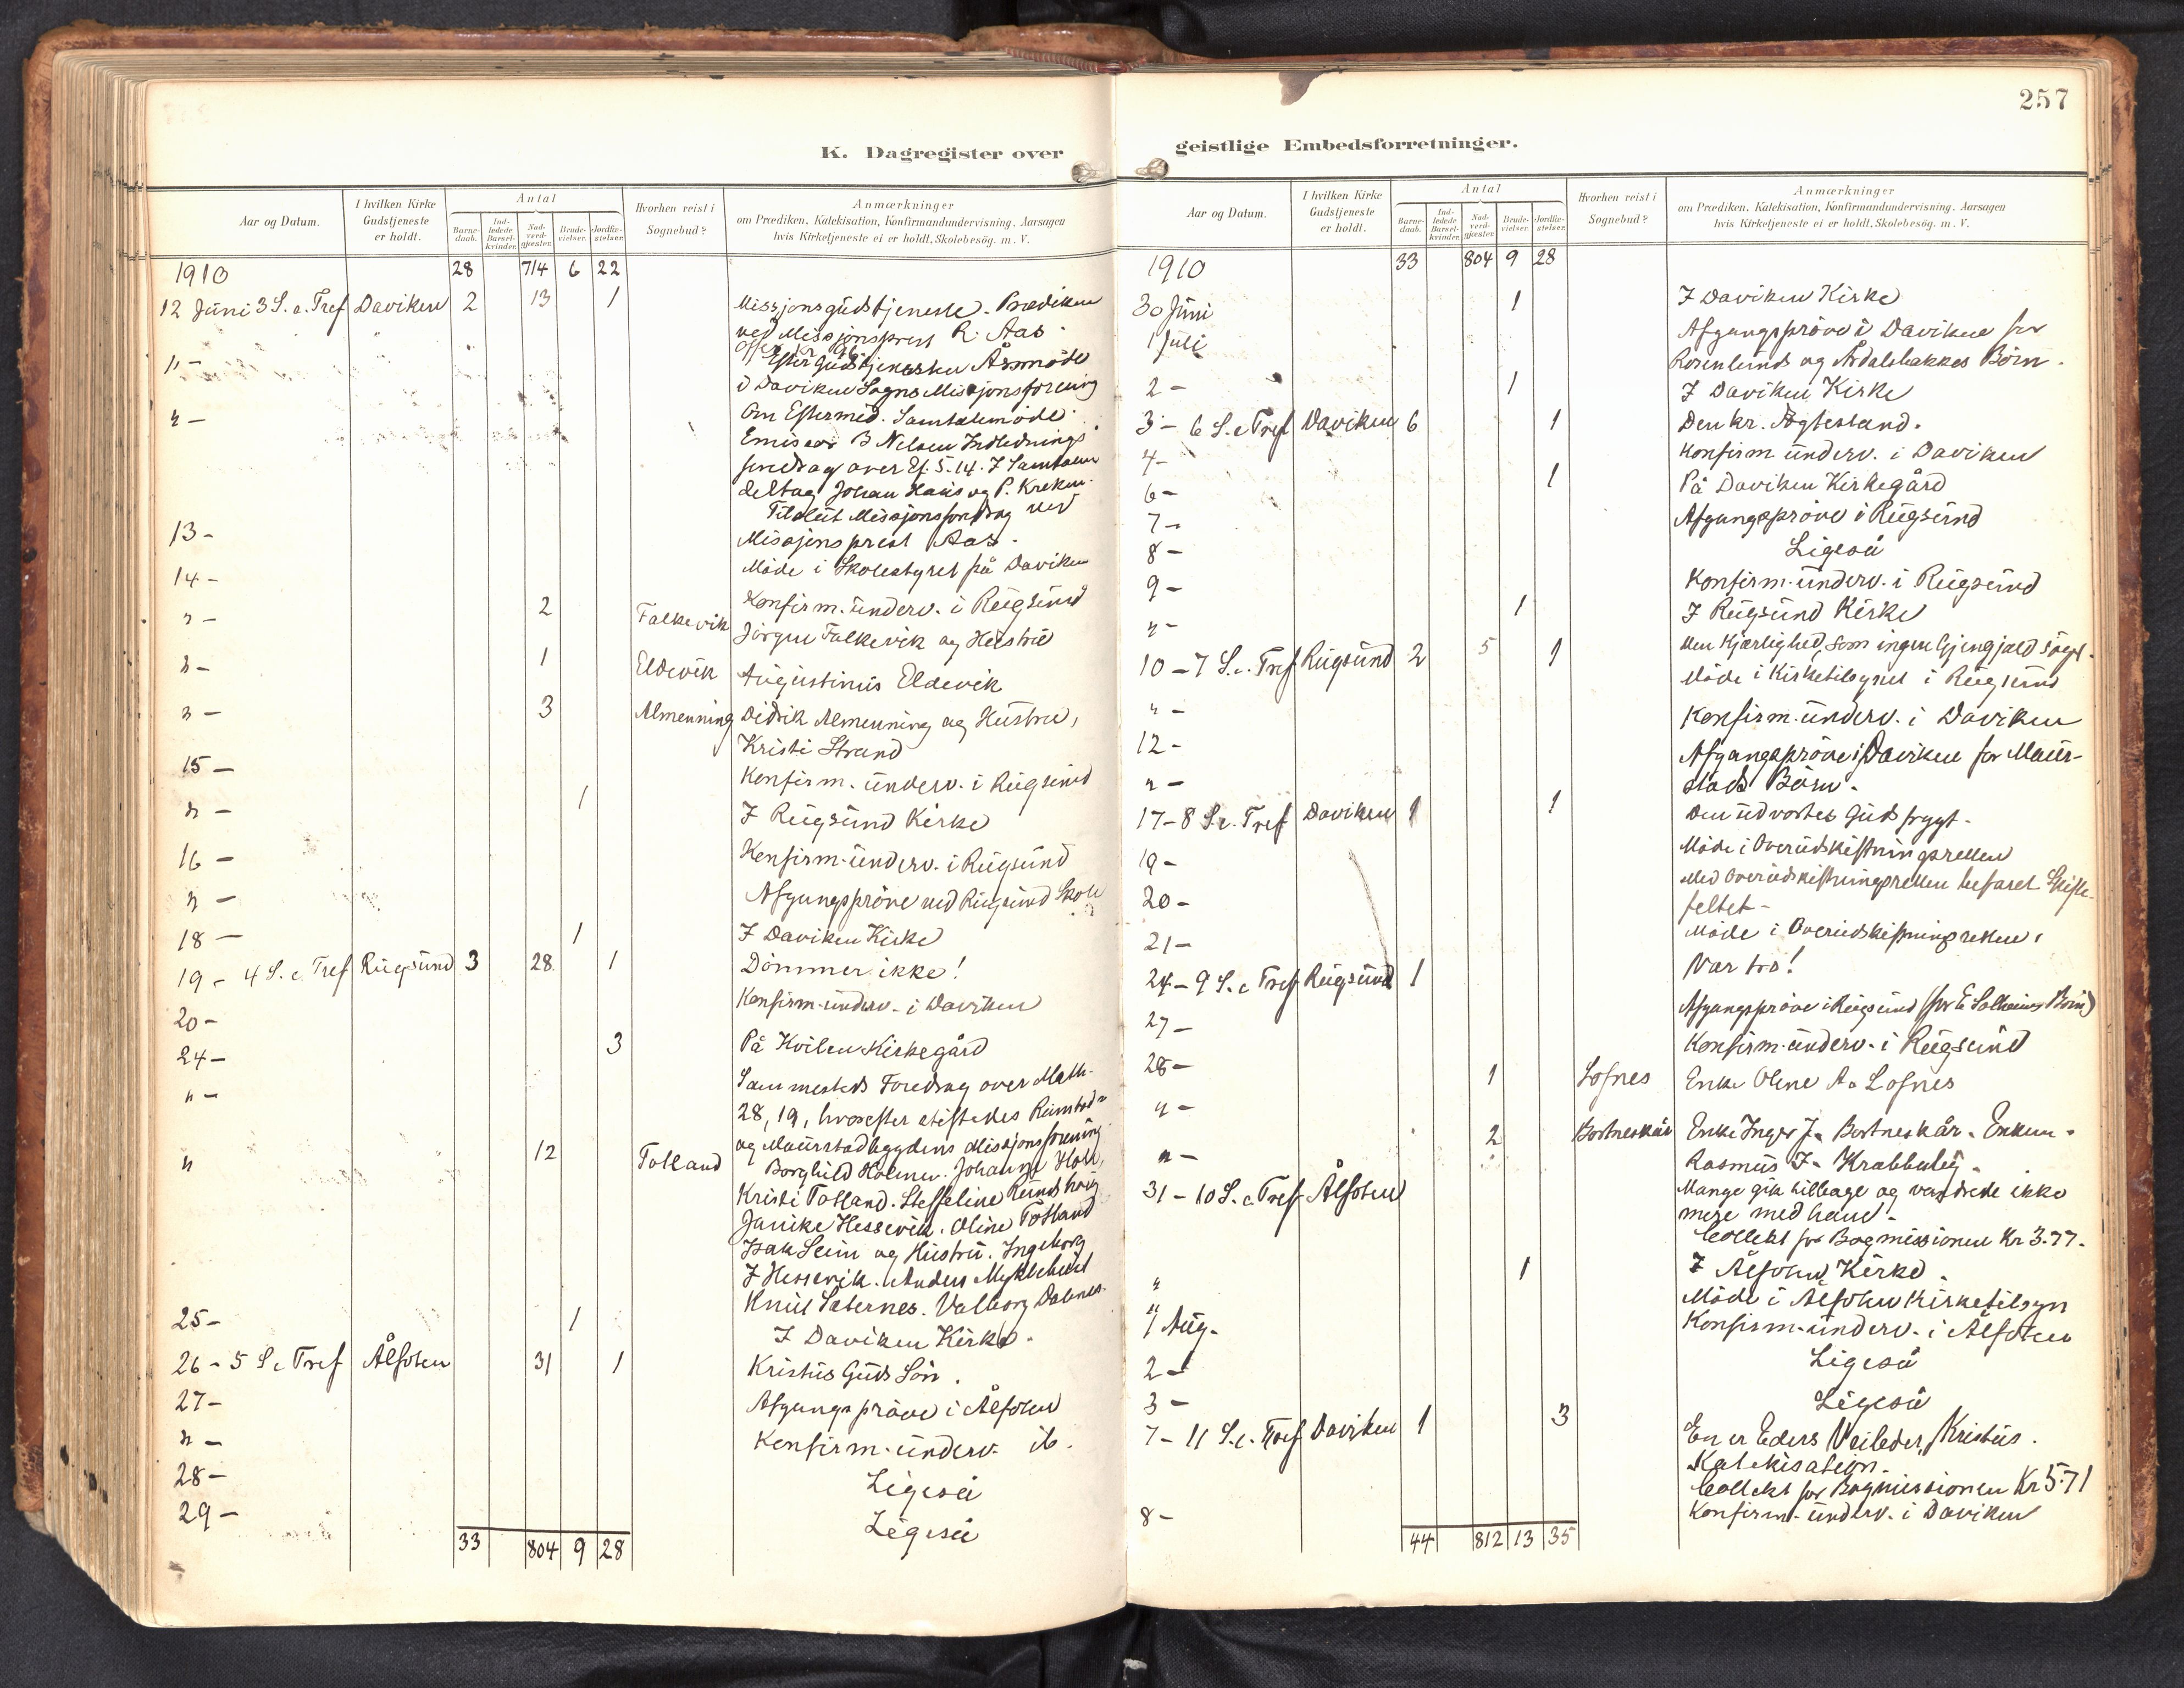 257
K. Dagregister over
Aar og Datum.
I hvilken Kirke Gudstjeneste er holdt.
Antal
Barne-daab.
Ind-ledede Barsel-kvinder.
Nad-verd-gjester.
Brude-vielser.
Jordfæ-stelser.
Hvorhen reist i Sognebud?
Anmærkninger
om Prædiken, Katekisation, Konfirmandundervisning. Aarsagen
hvis Kirketjeneste ei er holdt, Skolebesög. m. V.
1910 28 714 6 22
12 Juni 3 S. e. Tref Daviken 2 13 1 Missjonsgudstjeneste. Prædiken
ved Missjonsprest R. Aas.
"- Efter Gudstjenesten Årsmöde
i Daviken Sogns Missjonsforening
"- Om Eftermid. Samtalemöde.
Emissær B Nelsen Indlednings
foredrag over Ef. 5.14. I Samtalen
deltog Johan Haus og P. Kreken.
Tilslut Missjonsforedrag ved
Missjonsprest Aas.
13- Möde i Skolestyret på Daviken
14- Konfirm. underv. i Rugsund
"- 2 Falkevik Jörgen Falkevik og Hustru
"- 1 Eldevik Augustinus Eldevik
"- 3 Almenning Didrik Almenning og Hustru,
Kristi Strand
15- Konfirm. underv. i Rugsund
"- 1 I Rugsund Kirke
16- Konfirm. underv. i Rugsund
"- Afgangspröve ved Rugsund Skole
18- 1 I Daviken Kirke
19- 4 S. e. Tref Rugsund 3 28 1 Dömmer ikke!
20- Konfirm. underv. i Daviken
24- 3 På Hvilen Kirkegård
"- Sammesteds Foredrag over Math.
28,19, hvorefter stiftedes
og Maurstadbygdens Missjonsforening
" 12 Totland Borghild Holmen. Johanne Hole,
Kristi Totland. Steffeline
Janike Hessevik. Oline Totland
Isak Leim og Hustru. Ingeborg
J Hessevik. Anders Myklebust
Knut Sæternes. Valborg
25- 1 I Daviken Kirke.
26- 5 S e Tref Ålfoten 31 1 Kristus Guds Sön.
27- Afgangspröve i Ålfoten
"- Konfirm. underv. ib.
28- Ligeså
29- Ligeså
33 804 9 28
geistlige Embedsforretninger.
Aar og Datum.
I hvilken Kirke Gudstjeneste er holdt.
Antal
Barne-daab.
Ind-ledede Barsel-kvinder.
Nad-verd-gjester.
Brude-vielser.
Jordfæ-stelser.
Hvorhen reist i Sognebud?
Anmærkninger
om Prædiken, Katekisation, Konfirmandundervisning. Aarsagen
hvis Kirketjeneste ei er holdt, Skolebesög. m. V.
1910 33 804 9 28
30 Juni 1 I Daviken Kirke
1 Juli Afgangspröve i Daviken for
Rosenlunds og Årdalsbakkes Börn.
2- 1 I Daviken Kirke
3- 6 S. e Tref Daviken 6 1 Den kr. Ægtestand.
4- Konfirm. underv. i Daviken
6- 1 På Daviken Kirkegård
7- Afgangspröve i Rugsund
8- Ligeså
9- Konfirm. underv. i Rugsund
"- 1 I Rugsund Kirke
10- 7 S. e. Tref Rugsund 2 5 1 Den Kjærlighed, som ingen Gjengjæld söger.
"- Möde i Kirketilsynet i Rugsund
12- Konfirm. underv. i Daviken
"- Afgangspröve i Daviken for Maur-
stads Börn.
17- 8 S. e. Tref Daviken 1 1 Den udvortes Gudsfrygt.
19- Möde i Overudskiftningsretten
20- Med Overudskiftningsretten befaret Skifte-
feltet-
21- Möde i Overudskiftningsretten.
24- 9 S. e Tref Rugsund 1 Vær tro!
27- Afgangspröve i Rugsund (for E Solheims Börn)
28- Konfirm. underv. i Rugsund
"- 1 Lofnes Enke Oline A. Lofnes
"- 2 Bortneskår Enke Inger J. Bortneskår. Enkem.
Rasmus J. Krabbuleg.
31- 10 S. e Tref Ålfoten Mange gik tilbage og vandrede ikke
mere med ham.
Collekt for Bogmissionen Kr 3.77.
" 1 I Ålfoten Kirke.
" Möde i Ålfoten Kirketilsyn
1 Aug. Konfirm. underv. i Ålfoten
2- Ligeså
3- Ligeså
7- 11 S. e. Tref Daviken 1 3 En er Eders Veileder, Kristus.
Katekisation.
Collekt for Bogmissionen Kr 5.71
8- Konfirm. underv. i Daviken
44 812 13 35